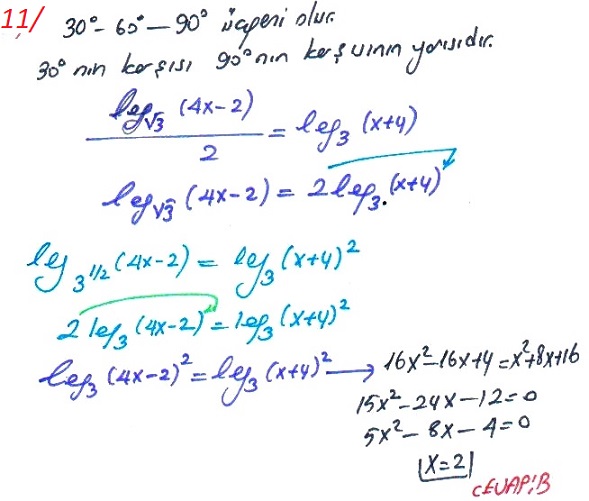 11/ 30° - 60° - 90° üçgeni olur.
30° nın karşısı 90° nın karşısının yarısıdır.
log√3 (4x-2) / 2 = log3 (x+4)
log√3 (4x-2) = 2log3 (x+4)
log3^1/2 (4x-2) = log3 (x+4)^2
2log3 (4x-2) = log3 (x+4)^2
log3 (4x-2)^2 = log3 (x+4)^2 → 16x^2-16x+4 = x^2+8x+16
15x^2-24x-12=0
5x^2-8x-4=0
x=2
CEVAP:B